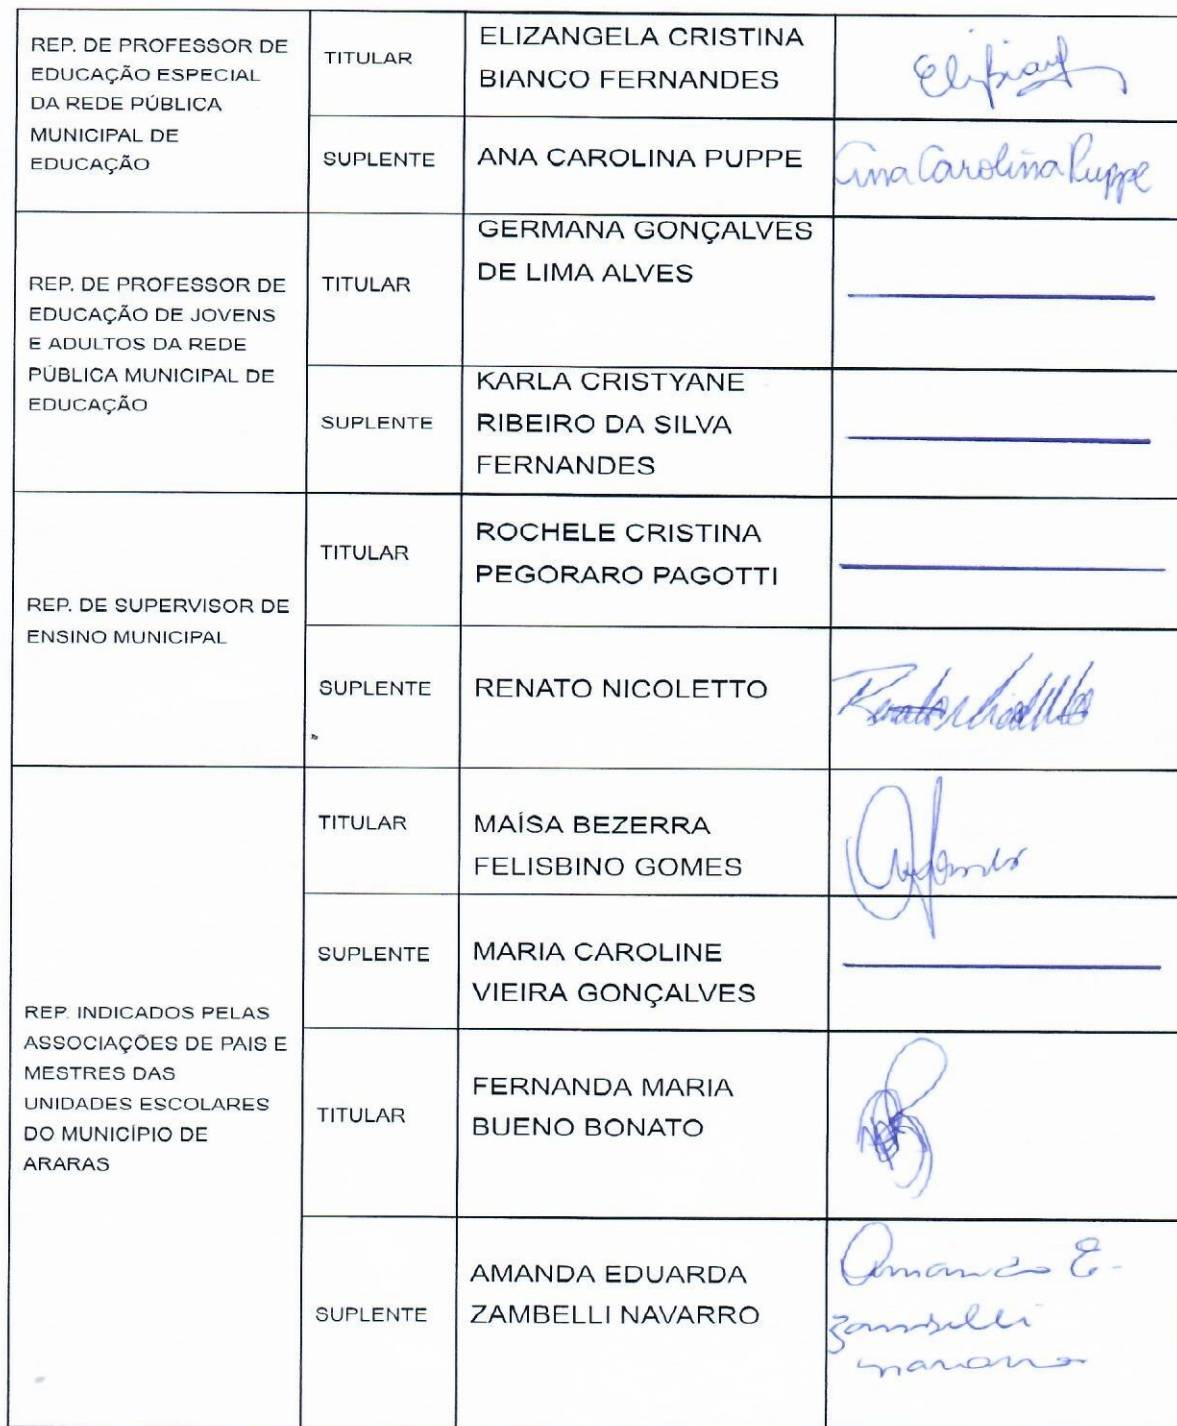 REP. DE PROFESSOR DE
EDUCAÇÃO ESPECIAL
DA REDE PÚBLICA
MUNICIPAL DE
EDUCAÇÃO
TITULAR
ELIZANGELA CRISTINA
BIANCO FERNANDES
SUPLENTE
ANA CAROLINA PUPPE
Ana Carolina Puppe
REP. DE PROFESSOR DE
EDUCAÇÃO DE JOVENS
E ADULTOS DA REDE
PÚBLICA MUNICIPAL DE
EDUCAÇÃO
TITULAR
GERMANA GONÇALVES
DE LIMA ALVES
SUPLENTE
KARLA CRISTYANE
RIBEIRO DA SILVA
FERNANDES
REP. DE SUPERVISOR DE
ENSINO MUNICIPAL
TITULAR
ROCHELE CRISTINA
PEGORARO PAGOTTI
SUPLENTE
RENATO NICOLETTO
REP. INDICADOS PELAS
ASSOCIAÇÕES DE PAIS E
MESTRES DAS
UNIDADES ESCOLARES
DO MUNICÍPIO DE
ARARAS
TITULAR
MAÍSA BEZERRA
FELISBINO GOMES
SUPLENTE
MARIA CAROLINE
VIEIRA GONÇALVES
TITULAR
FERNANDA MARIA
BUENO BONATO
SUPLENTE
AMANDA EDUARDA
ZAMBELLI NAVARRO
Amanda E.
Zambelli
Navarro